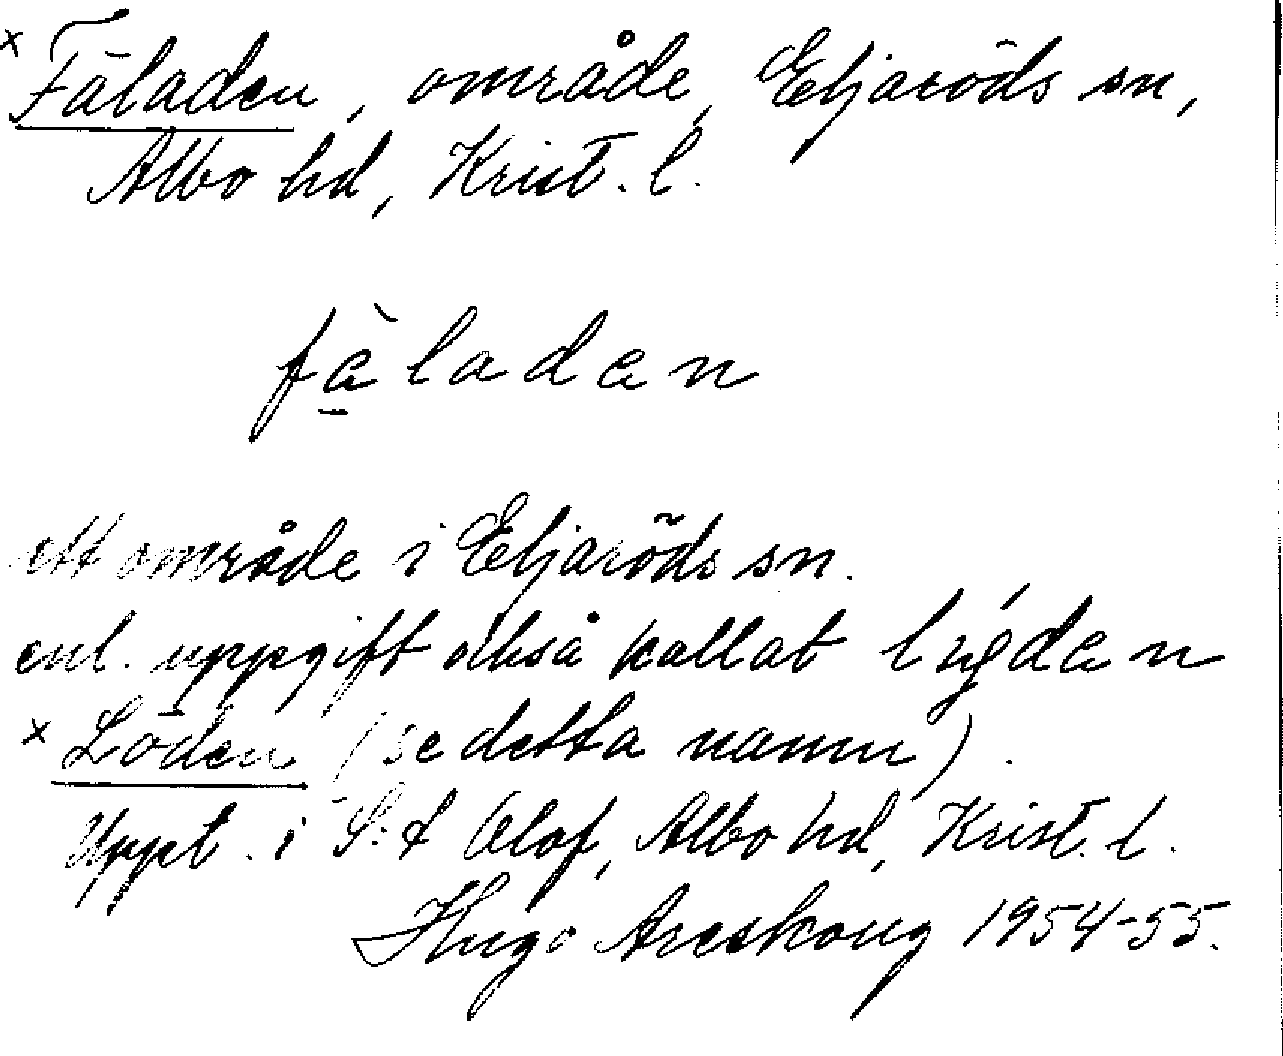 x Fäladen, område, Eljaröds sn,
Albo hd, Krist. l.
fä̱̀ladən
ett område i Eljaröds sn.
enl. uppgift också kallat
x Löden (se detta namn).
Uppt. i S:t Olof, Albo hd, Krist. l.
Hugo Areskoug 1954-55.